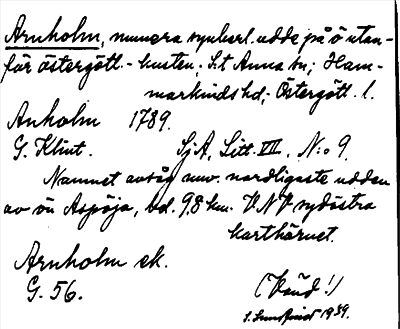 Arnholm, numera synbarl. udde på ö utan-
för östergötl.-kusten; S:t Anna sn; Ham-
markinds hd; Östergötl. l.
Anholm 1789.
G. Klint. SjA, Litt. VII, N:o 9.
Namnet avsåg nuv. nordligaste udden
av ön Aspöja, bel. 9,8 km. VNV sydöstra
karthörnet.
Arnholm ek.
G. 56.
1939.